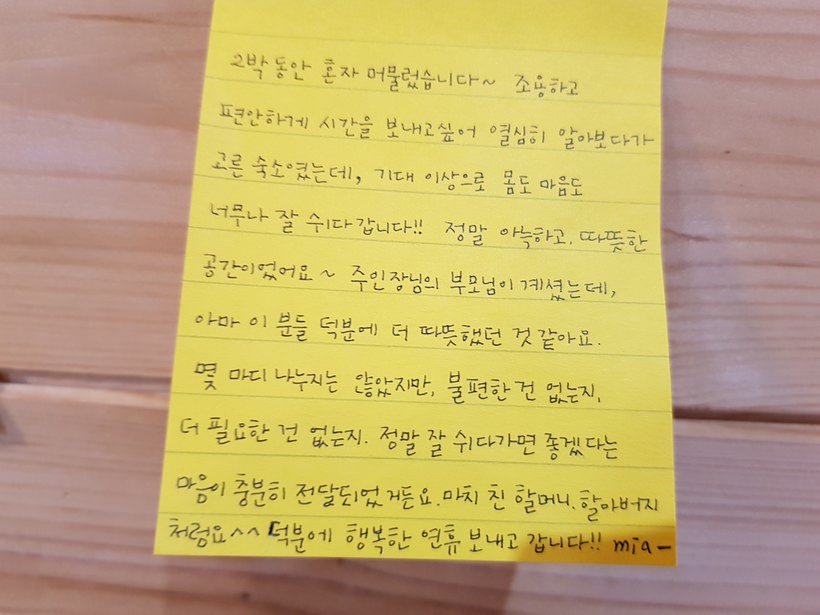 2박 동안 혼자 머물렀습니다~ 조용하고
편안하게 시간을 보내고싶어 열심히 알아보다가
고른 숙소였는데, 기대 이상으로 몸도 마음도
너무나 잘 쉬다 갑니다!! 정말 아늑하고, 따뜻한
공간이었어요~ 주인장님의 부모님이 계셨는데,
아마 이 분들 덕분에 더 따뜻했던 것 같아요.
몇 마디 나누지는 않았지만, 불편한 건 없는지,
더 필요한 건 없는지. 정말 잘 쉬다가면 좋겠다는
마음이 충분히 전달되었거든요. 마치 친 할머니, 할아버지
처럼요^^ 덕분에 행복한 연휴 보내고 갑니다!! mia-